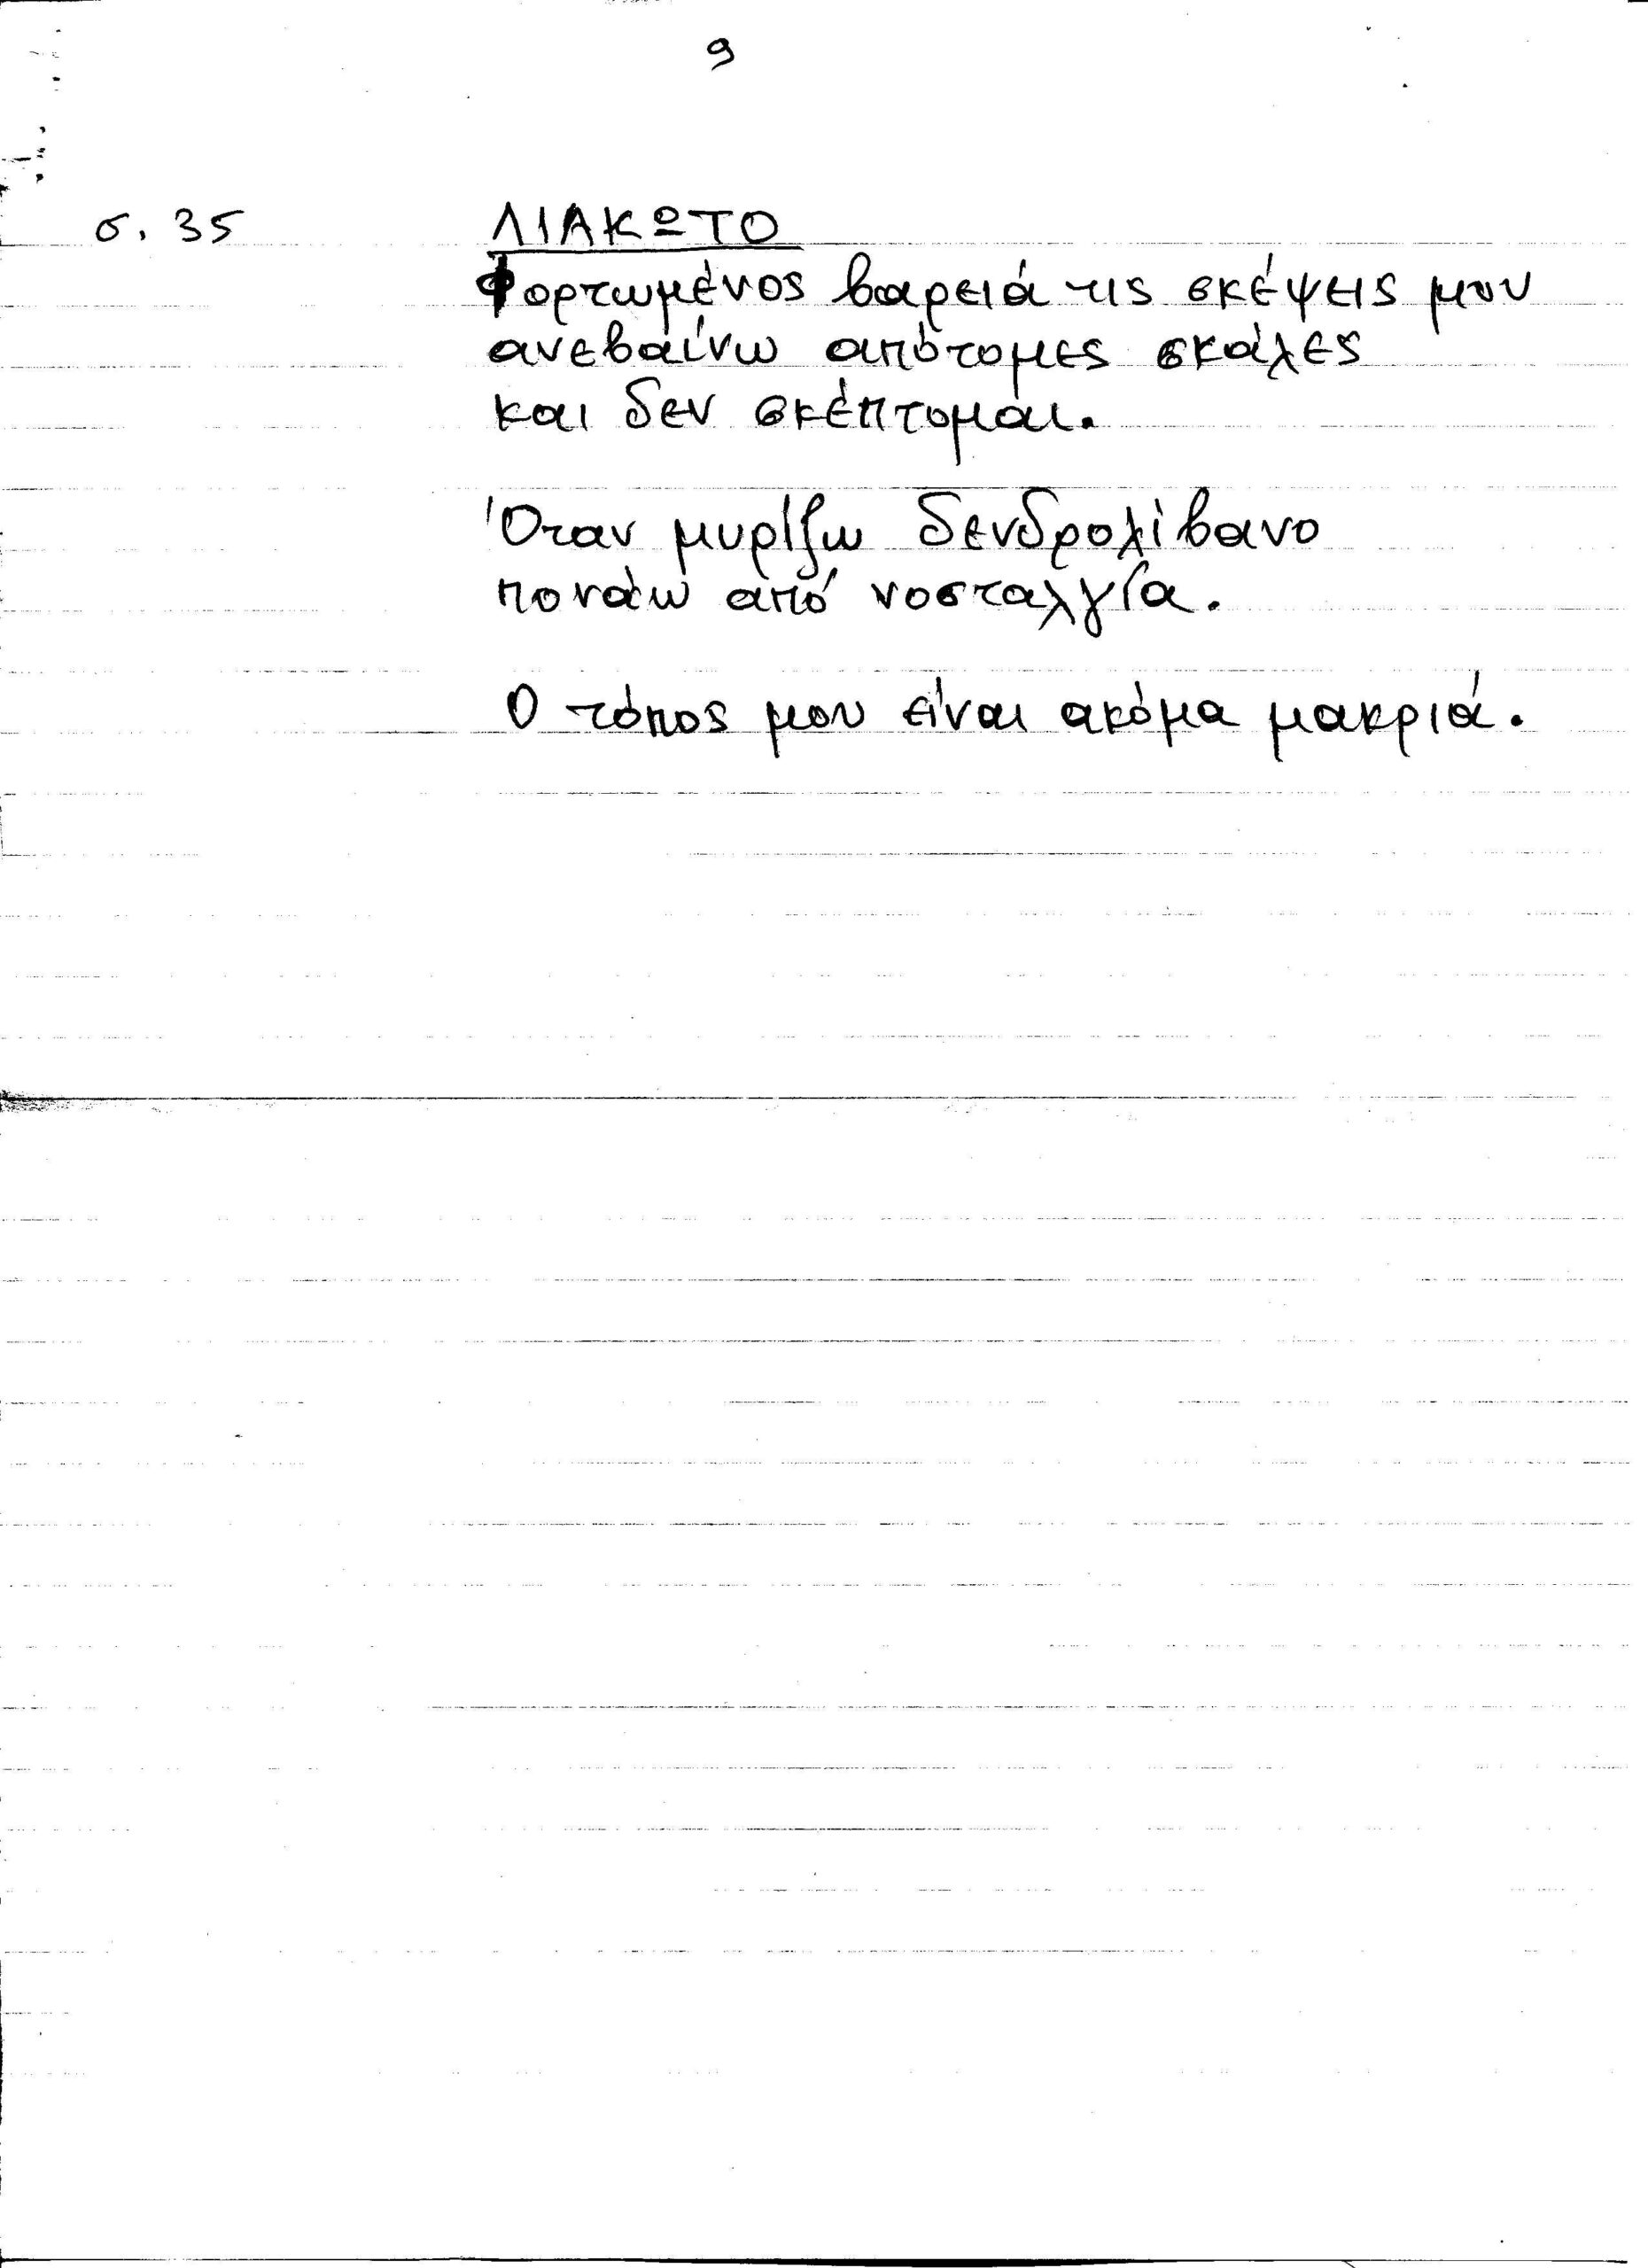 9
σ. 35 ΛΙΑΚΩΤΟ
Φορτωμένος βαρειά τις σκέψεις μου
ανεβαίνω απότομες σκάλες
και δεν σκέπτομαι.
Όταν μυρίζω δενδρολίβανο
πονάω από νοσταλγία.
Ο τόπος μου είναι ακόμα μακριά.